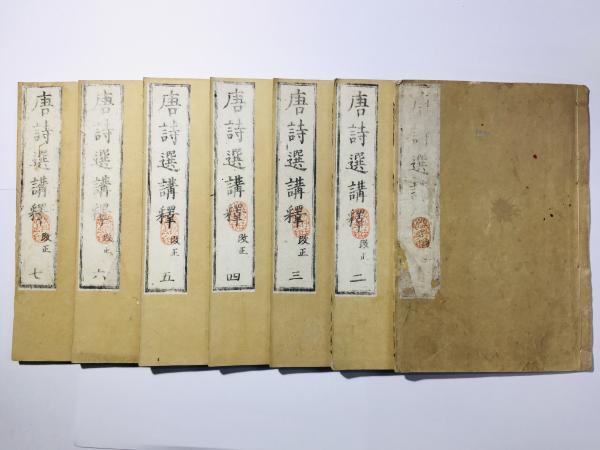 唐詩選講
唐詩選講釋
改正
二
唐詩選講釋
改正
三
唐詩選講釋
改正
四
唐詩選講釋
改正
五
唐詩選講釋
改正
六
唐詩選講釋
改正
七